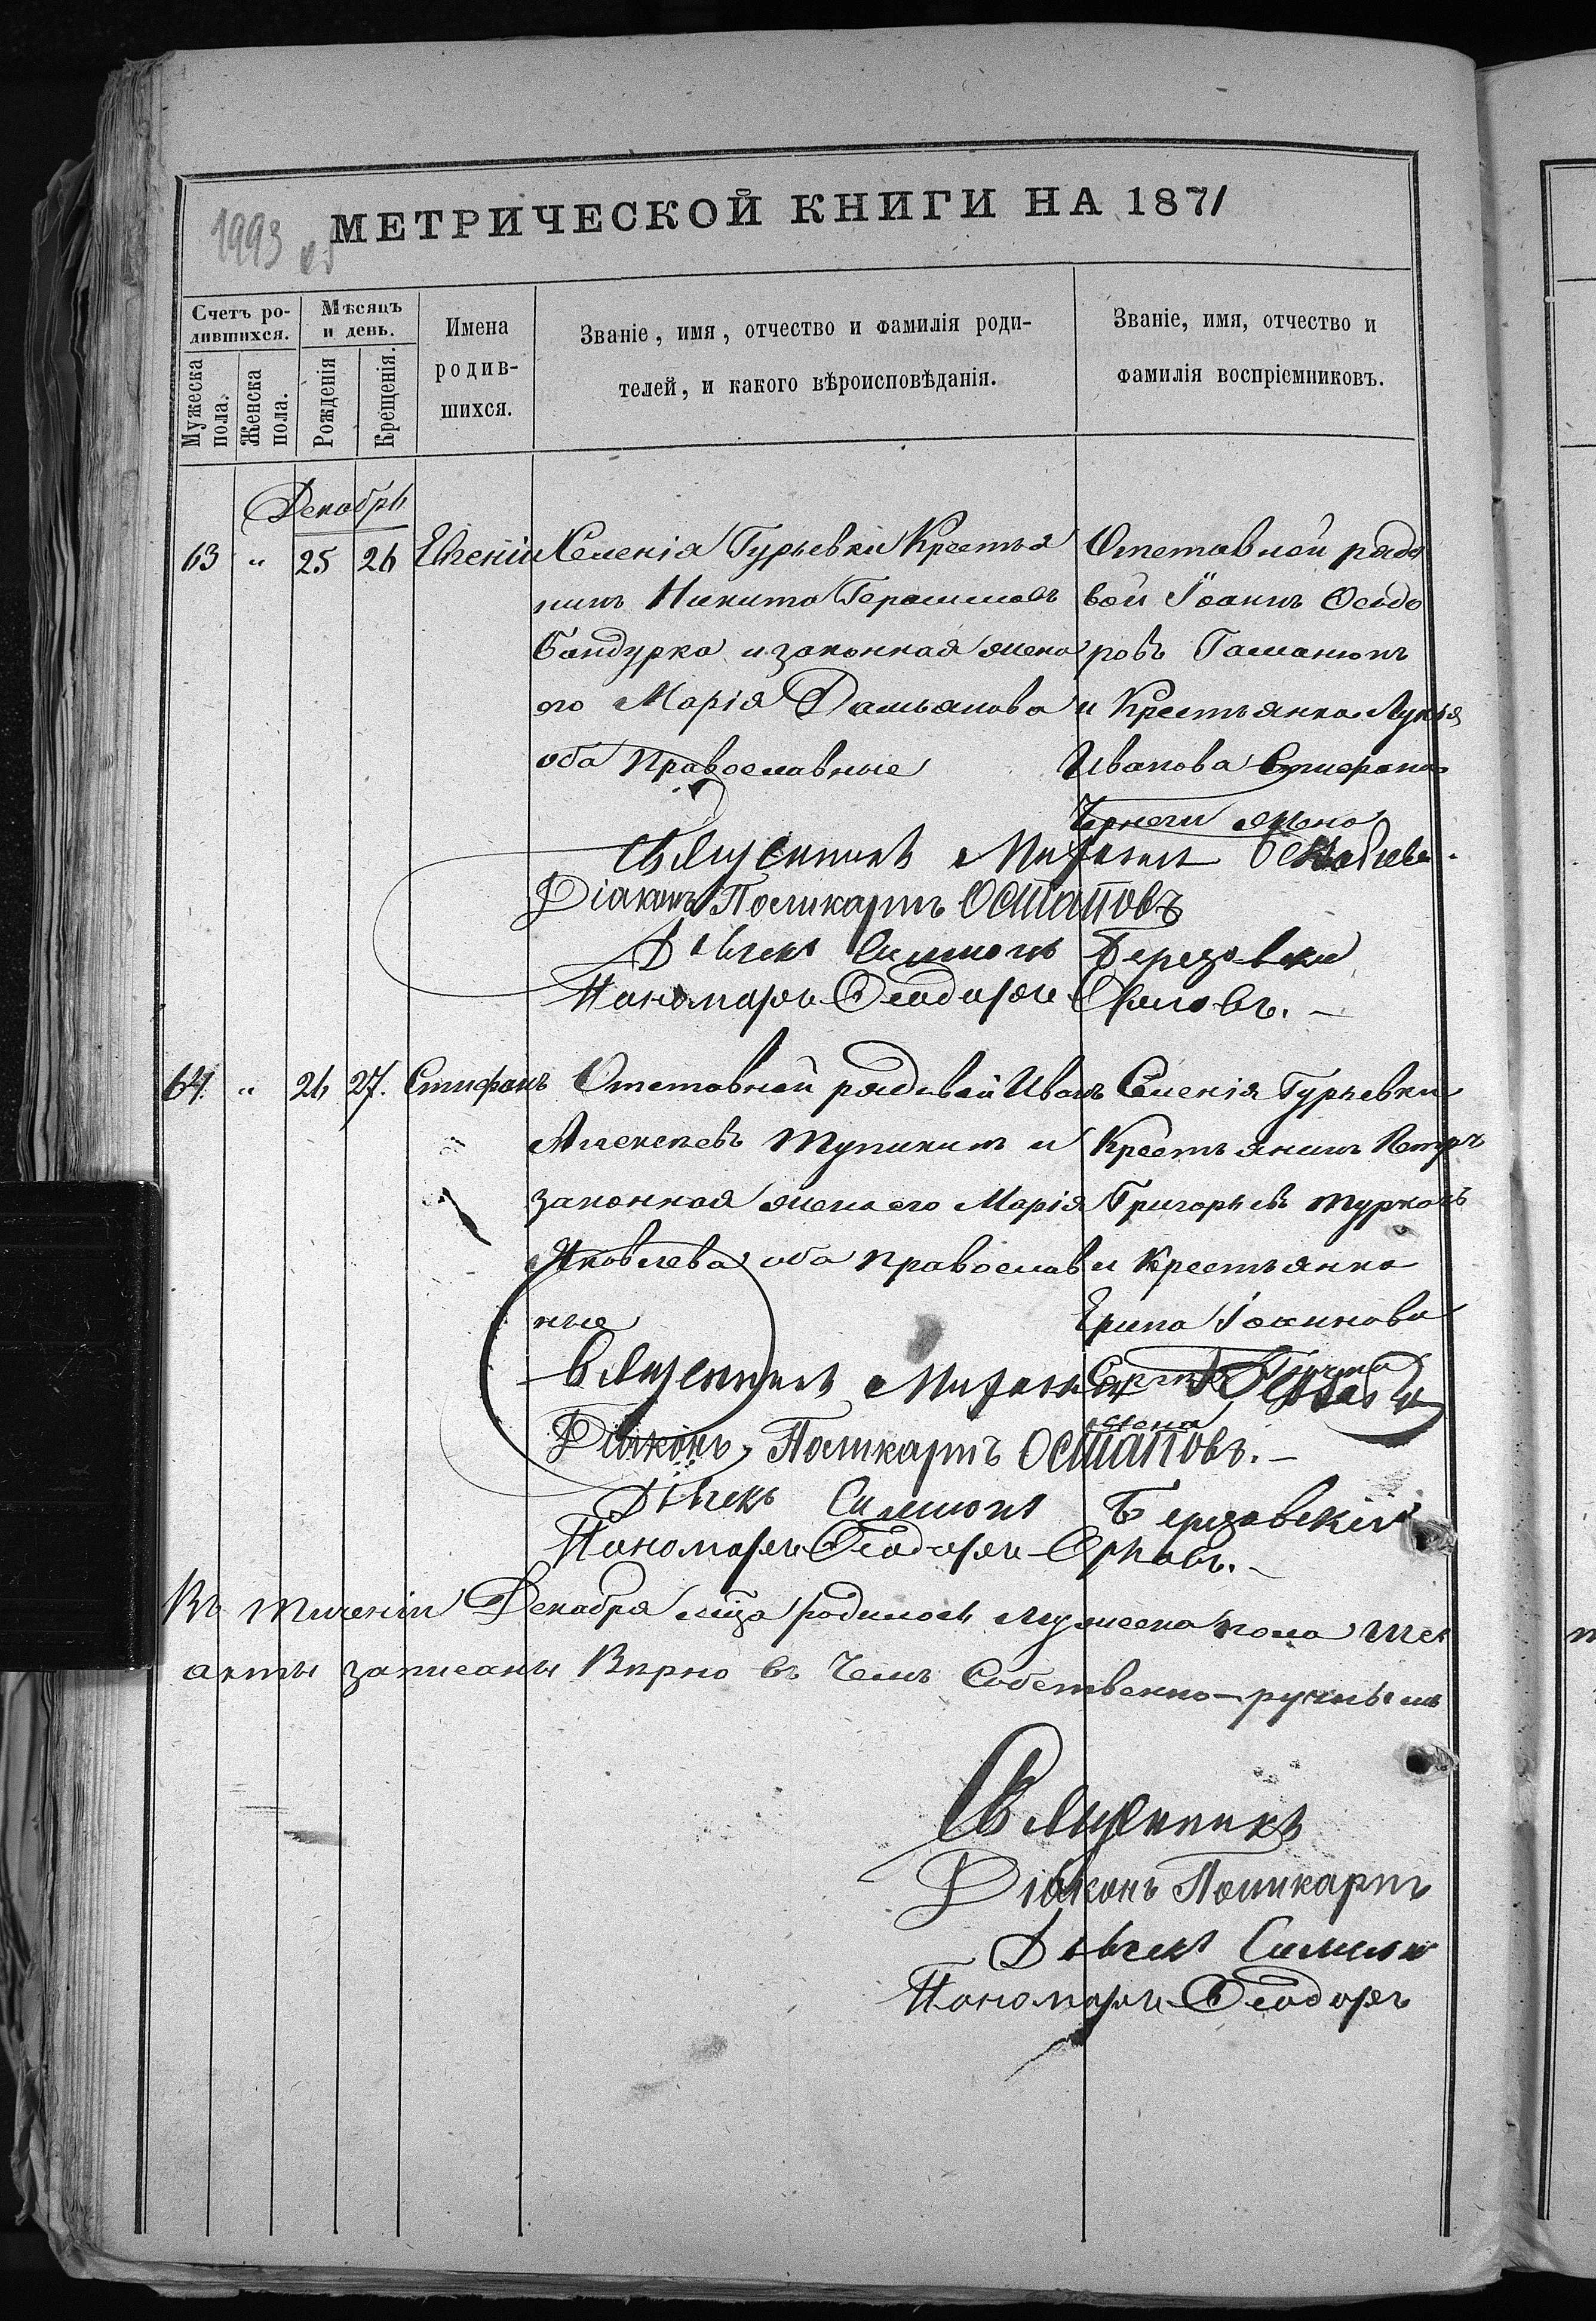 1993 об
МЕТРИЧЕСКОЙ КНИГИ НА 1871
Счетъ ро-
дившихся.
Мужеска
пола.
Женска
пола.
Мѣсяцъ
и день.
Рожденія
Крещенія.
Имена
родив-
шихся.
Званіе, имя, отчество и фамилія роди-
телей, и какого вѣроисповѣданія.
Званіе, имя, отчество и
фамилія воспріемниковъ.
Декабрь
63 " 25 26 Евгеній
Селенія Гурьевки Крестья
нинъ Никита Герасимовъ
Бандурка и законная жена
его Марія Дамьянова
оба Православные
Отставной рядо
вой Іоаннъ Ѳеодо
ровъ
и Крестьянка Лукія
Иванова Стефана
жена
Священникъ Михаилъ
Діаконъ Поликарпъ Остаповъ
Дьячекъ Симеонъ Березовскій
Пономарь Ѳеодоръ
64. " 26 27. Стефанъ
Отставной рядовой Иванъ
Алексѣевъ и
законная жена его Марія
Яковлева оба православ
ные
Селенія Гурьевки
Крестьянинъ Петръ
Григорьевъ
и крестьянка
Ерина Іоаннова
жена
Священникъ Михаилъ
Діаконъ Поликарпъ Остаповъ.
Дьячекъ Симеонъ Березовскій
Пономарь Ѳеодоръ
Въ теченіи Декабря мѣца родилось мужеска пола
акты записаны Вѣрно въ чемъ Собственно-ручнымъ
Священникъ
Діаконъ Поликарпъ
Дьячекъ Симеон
Пономарь Ѳеодоръ